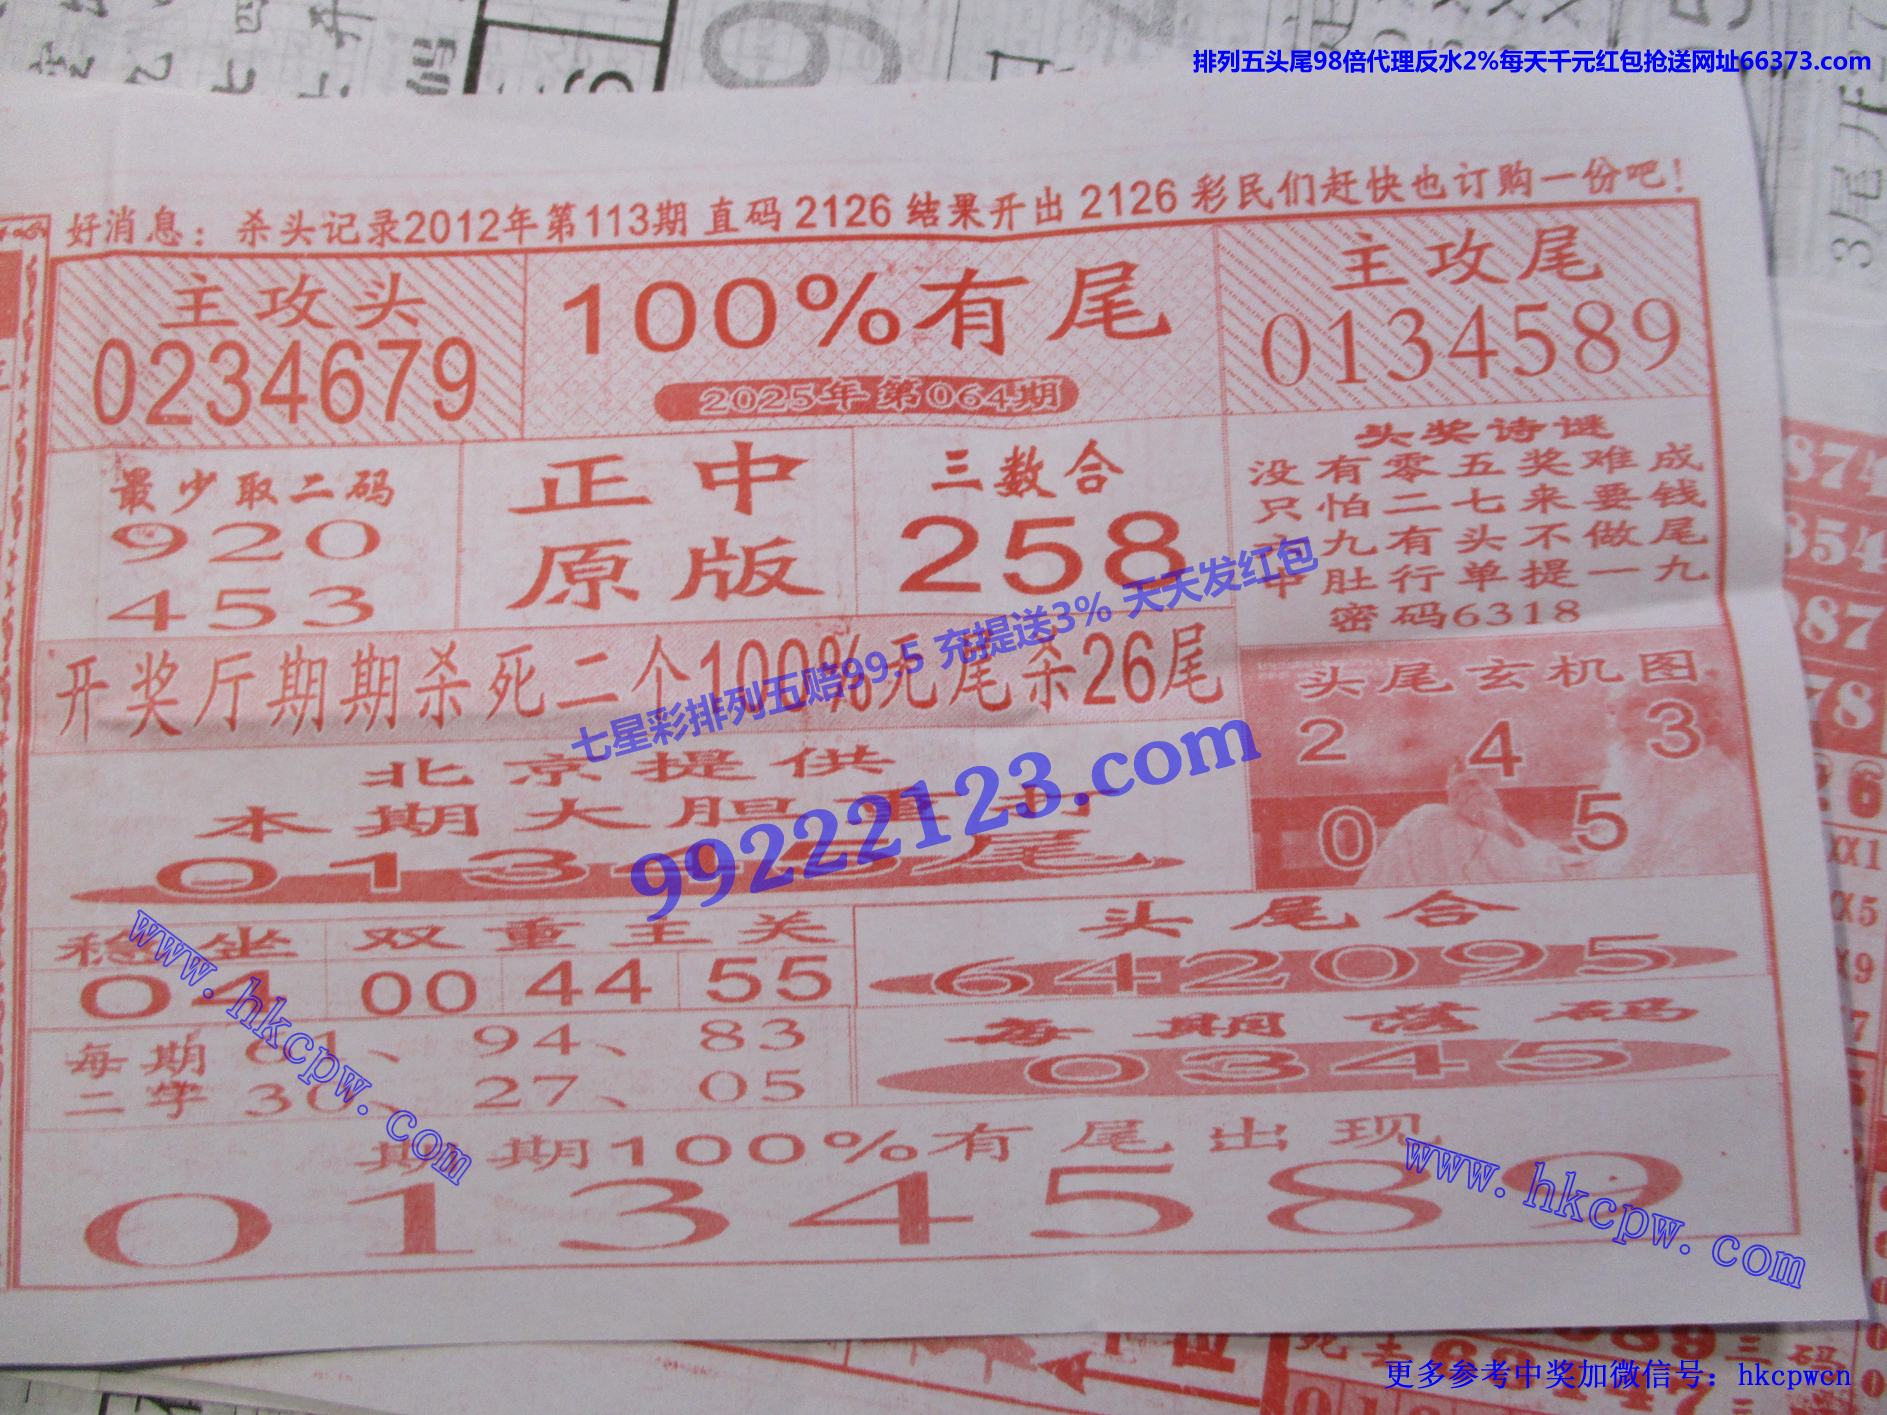 排列五头尾98倍代理反水2%每天千元红包抢送网址66373.com
好消息：杀头记录2012年第113期 直码 2126 结果开出 2126 彩民们赶快也订购一份吧！
主攻头
0234679
100%有尾
2025年第064期
主攻尾
0134589
最少取二码
920
453
正中
原版
三数合
258
头奖诗谜
没有零五奖难成
只怕二七来要钱
九有头不做尾
中肚行单提一九
密码6318
开奖厅期期杀死二个100%无尾杀26尾
七星彩排列五赔99.5 充提送3% 天天发红包
99222123.com
头尾玄机图
2 4 3
0 5
北京提供
本期大胆
013 尾
稳坐
04
双重主关
00 44 55
头尾合
642095
每期 61、94、83
二字 30、27、05
每期落码
0345
期期100%有尾出现
0134589
www.hkcpw.com
www.hkcpw.com
更多参考中奖加微信号：hkcpwcn